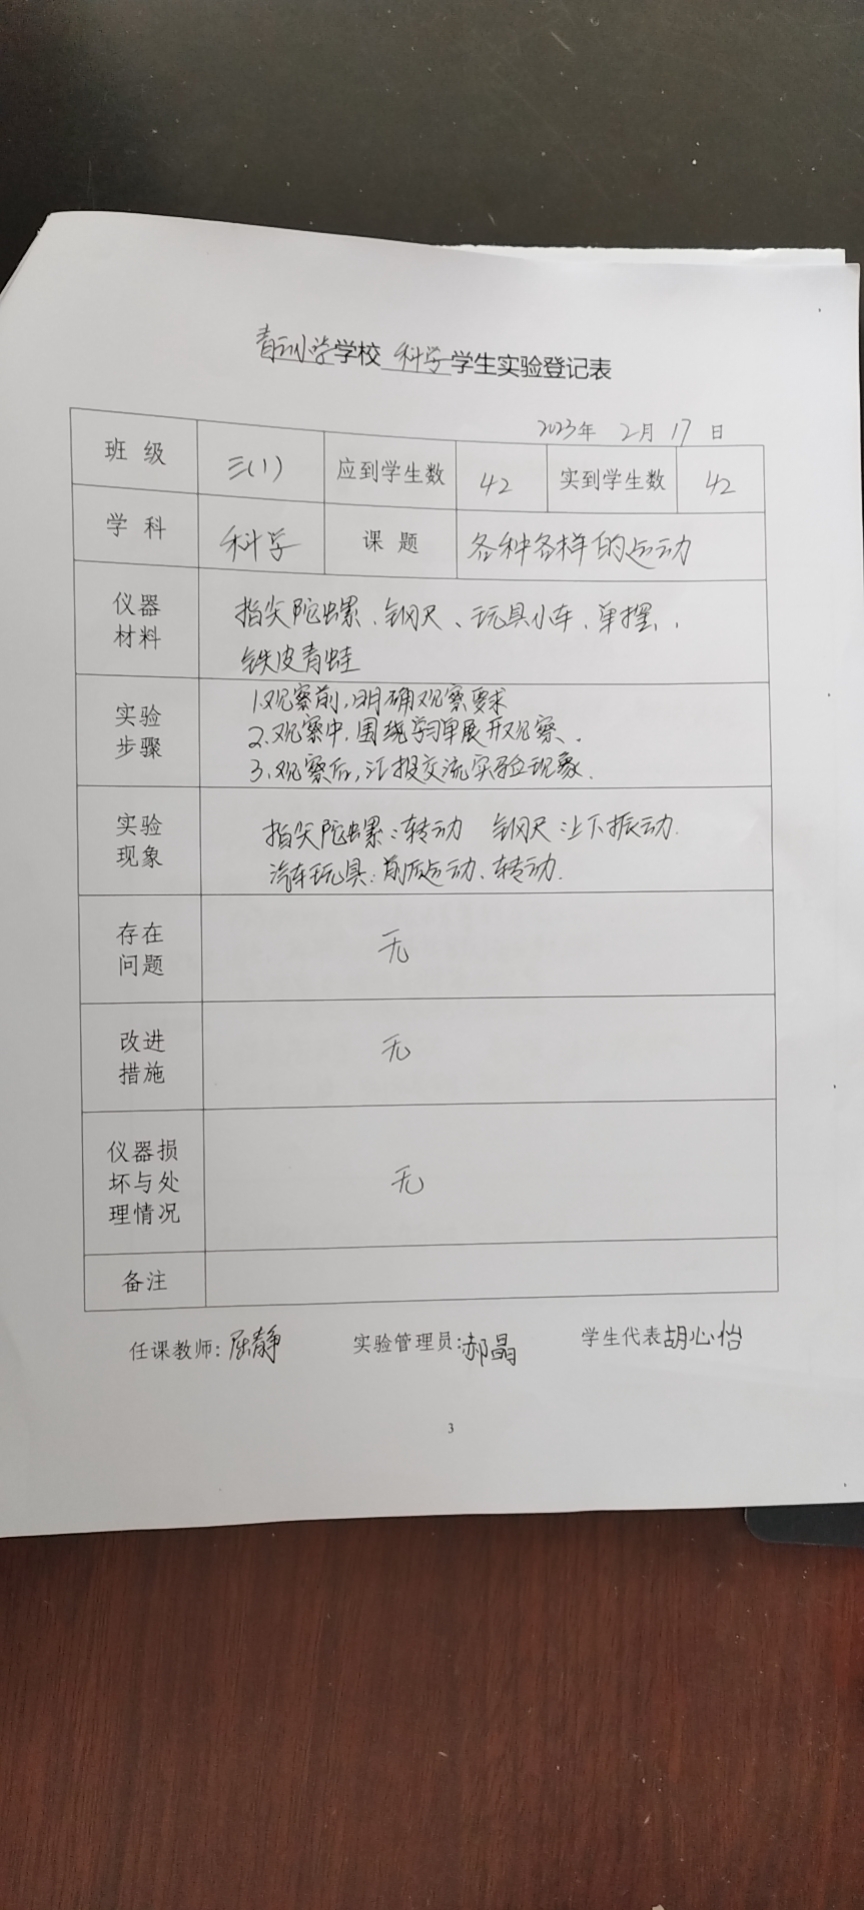 青云小学学校 科学 学生实验登记表
2023年 2月 17日
班级 三(1) 应到学生数 42 实到学生数 42
学科 科学 课题 各种各样的运动
仪器材料 指尖陀螺、钢尺、玩具小车、单摆、
铁皮青蛙
实验步骤 1.观察前,明确观察要求
2.观察中,围绕学习单展开观察、
3.观察后,汇报交流实验现象.
实验现象 指尖陀螺:转动 钢尺:上下振动.
汽车玩具:前后运动、转动.
存在问题 无
改进措施 无
仪器损坏与处理情况 无
备注
任课教师:屈静 实验管理员:郝晶 学生代表胡心怡
3